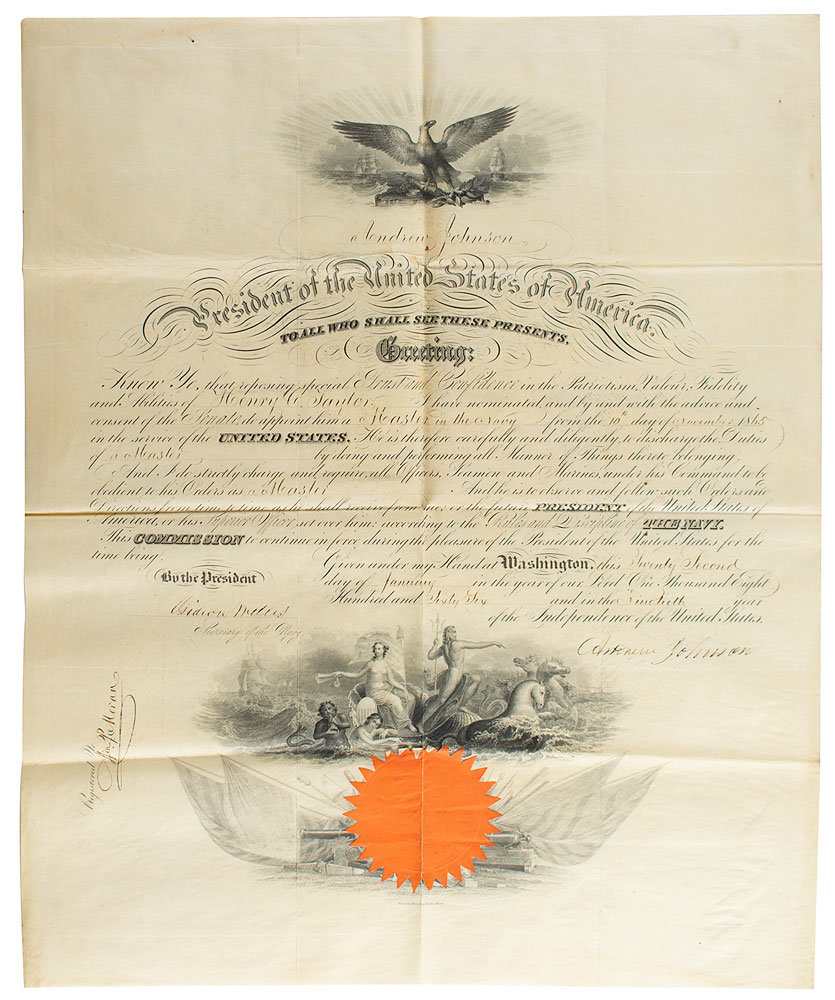 Andrew Johnson
President of the United States of America.
TO ALL WHO SHALL SEE THESE PRESENTS,
Greeting:
Know Ye, that reposing special Trust and Confidence in the Patriotism, Valour, Fidelity
and Abilities of Henry C. Taylor I have nominated, and by and with the advice and
consent of the Senate, do appoint him a Master in the Navy from the 10th day of November 1865
in the service of the UNITED STATES. He is therefore carefully and diligently, to discharge the Duties
of a Master by doing and performing all Manner of Things thereto belonging.
And I do strictly charge, and require, all Officers, Seamen and Marines, under his Command to be
obedient to his Orders as a Master And he is to observe and follow such Orders and
Directions from time to time as he shall receive from me, or the future PRESIDENT of the United States of
America, or his Superior Officer set over him, according to the Rules and Discipline of THE NAVY.
This COMMISSION to continue in force during the pleasure of the President of the United States for the
time being.
Given under my Hand at Washington, this Twenty Second
By the President
day of January in the year of our Lord One Thousand Eight
Hundred and Sixty Six and in the Ninetieth year
of the Independence of the United States.
Gideon Welles
Secretary of the Navy.
Andrew Johnson
Registered No.